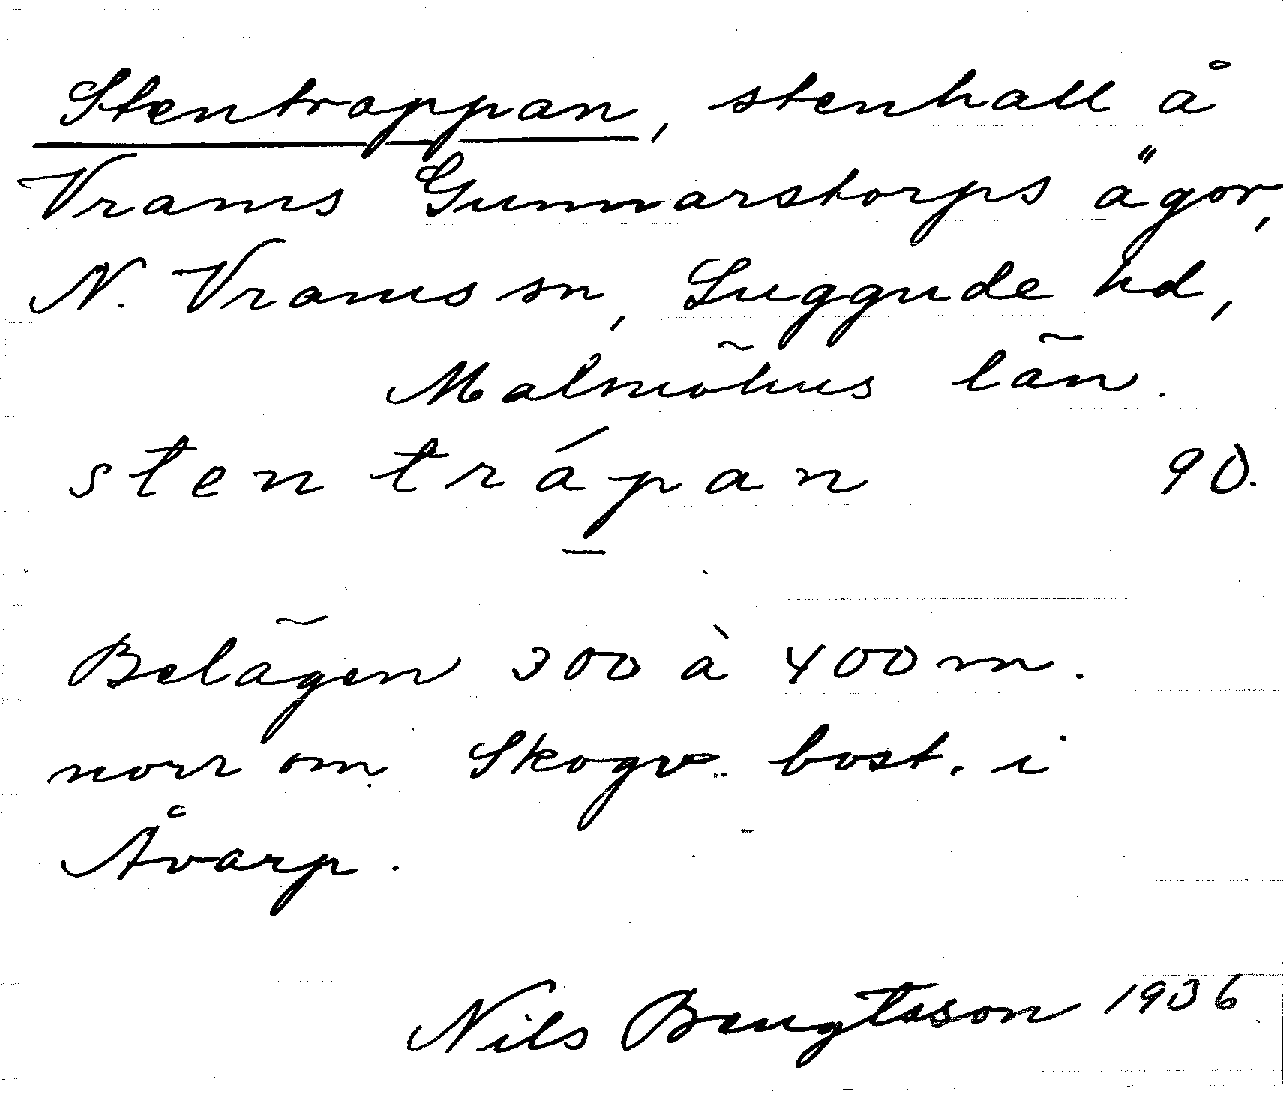 Stentrappan, stenhall å
Vrams Gunnarstorps ägor,
N. Vrams sn, Luggude hd,
Malmöhus län.
sten trápan 90.
Belägen 300 à 400 m.
norr om Skogv. bost. i
Åvarp.
Nils Bengtsson 1936